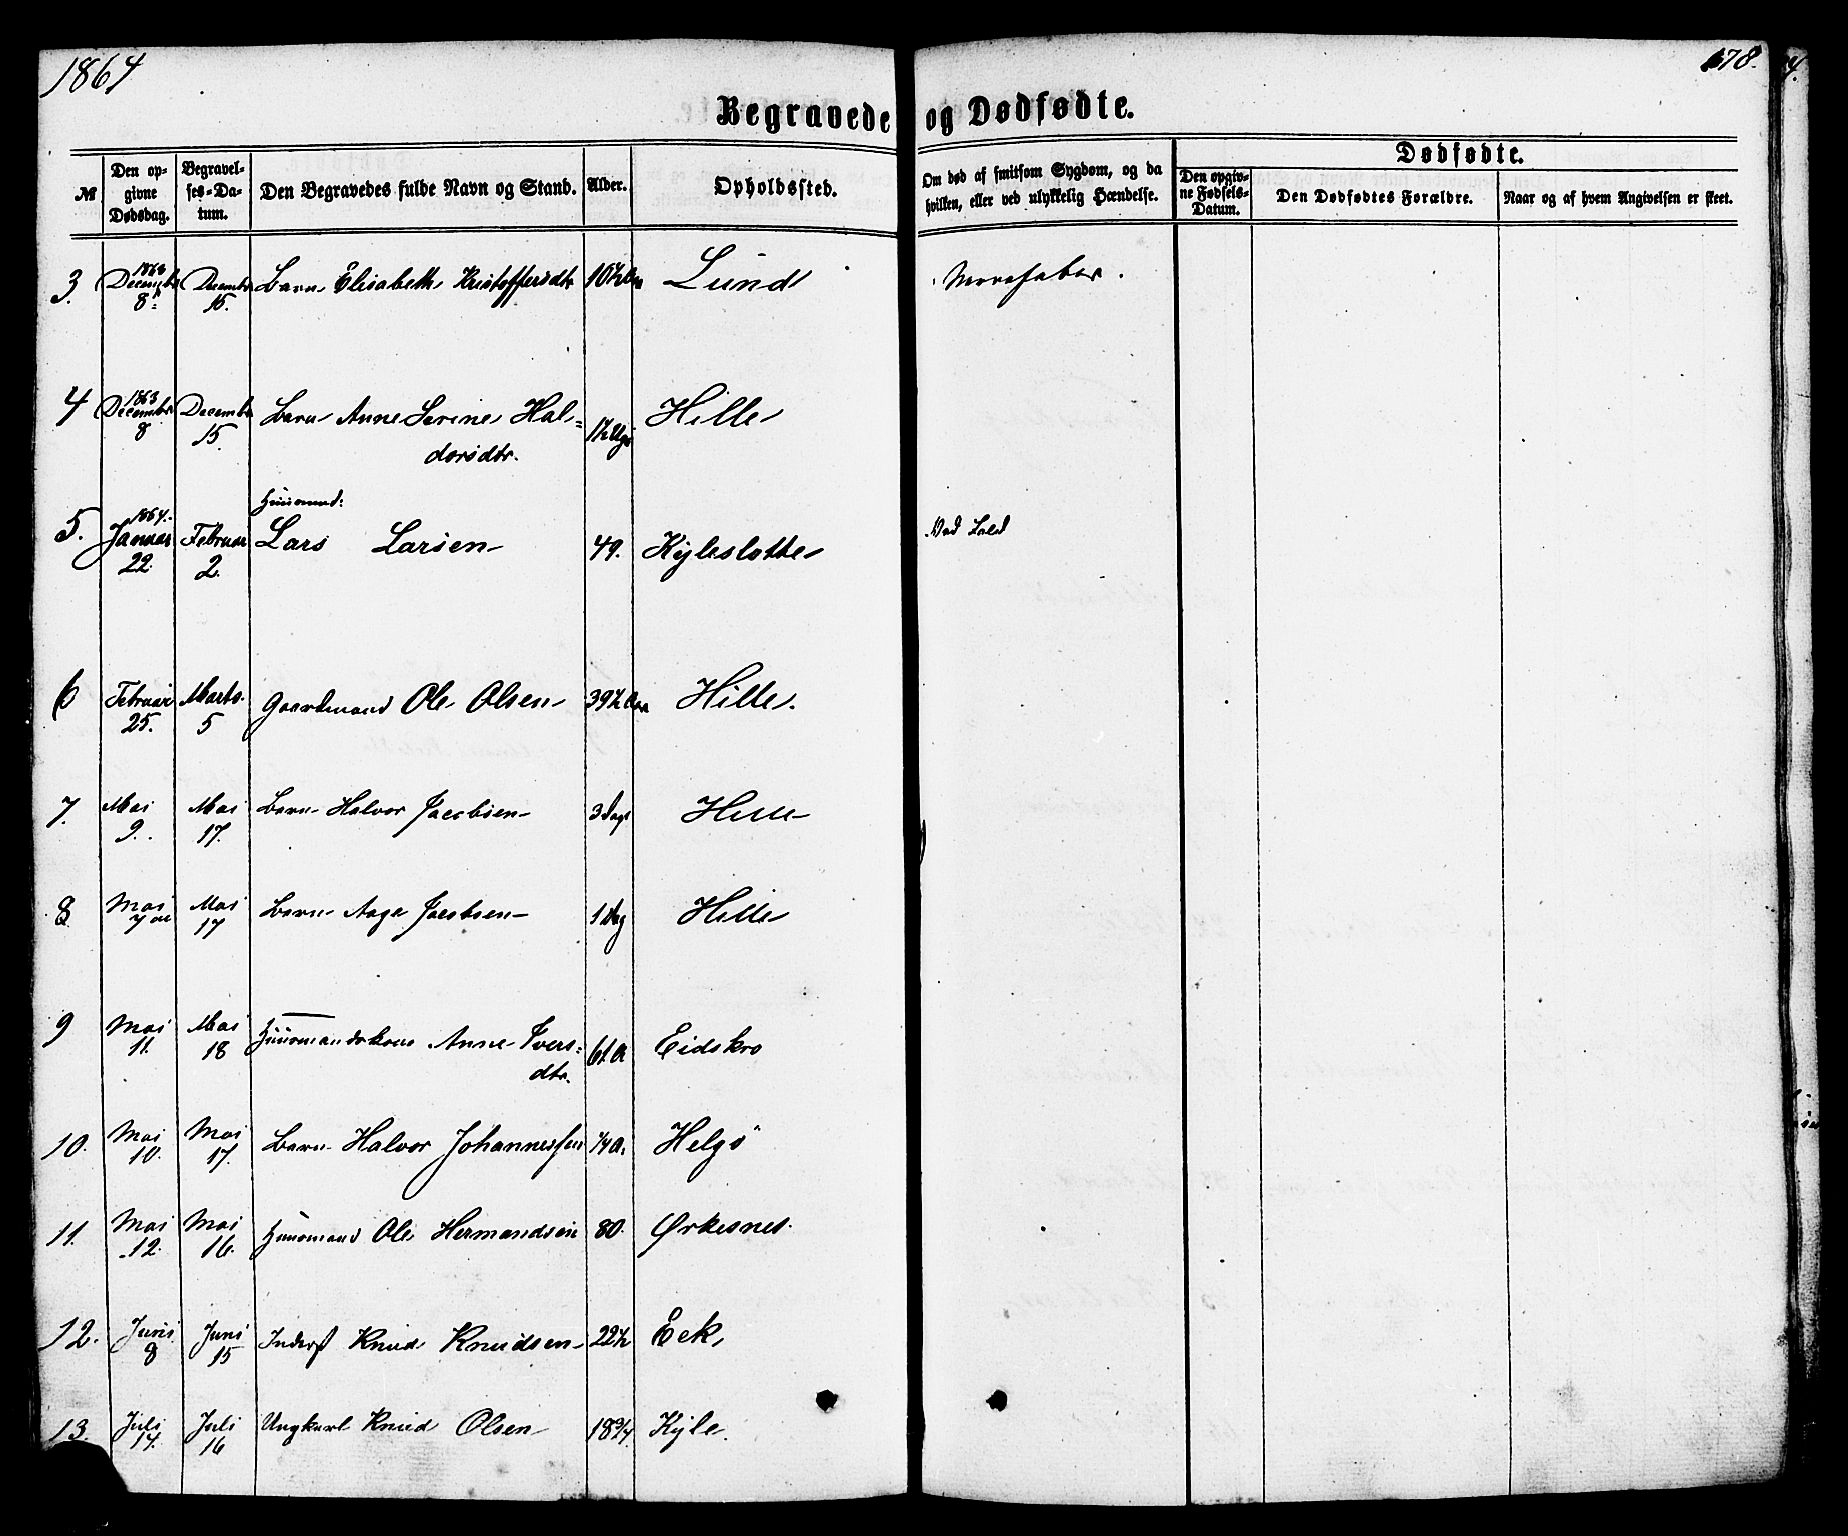 1864
178.
4.
Begravede og Dødfødte.
№
Den op-
givne
Dødsdag.
Begravel-
ses-Da-
tum.
Den Begravedes fulde Navn og Stand.
Alder.
Opholdssted.
Om død af smitsom Sygdom, og da
hvilken, eller ved ulykkelig Hændelse.
Dødfødte.
Den opgiv-
ne Fødsels-
Datum.
Den Dødfødtes Forældre.
Naar og af hvem Angivelsen er skeet.
3. 1863 Decembr 8. Decembr 15. Barn Elisabeth Kristoffersdtr Lund
4 1863 Decembr 8 Decembr 15. Barn Anne Serine Hal=
dorsdtr. 1½ Uge Hille
Huusmand:
5. 1864. Januar 22. Februar 2. Lars Larsen 49. Kyleslotte
6 Februar 25. Marts 5 Gaardmand Ole Olsen 39½ Aar Hille.
7. Mai 9. Mai 17. Barn Halvor Jacobsen 3 Dage Hille
8 Mai 7 Mai 17 Barn Aage Jacobsen 1 Dag Hille
9 Mai 11. Mai 18 Huusmandskone Anne Ivers=
dtr. 61 A Eidskro
10. Mai 10. Mai 17. Barn Halvor Johannessen ¼ A. Helgö
11. Mai 12. Mai 16. Huusmand Ole Hermandsen 80. Ørkesnes.
12. Juni 8 Juni 15 Inderst Knud Knudsen 22½ Eek
13. Juli 14. Juli 16 Ungkarl Knud Olsen 18¾. Kyle.